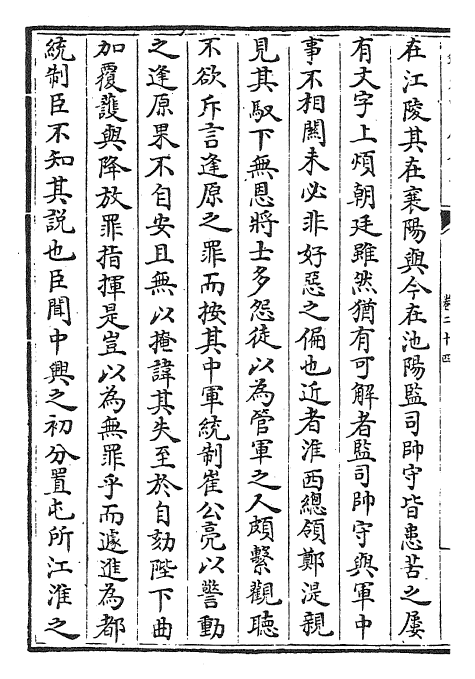 在江陵其在襄陽與今在池陽監司帥守皆患苦之屢
有文字上煩朝廷雖然猶有可解者監司帥守與軍中
事不相關未必非好惡之偏也近者淮西總領鄭湜親
見其馭下無恩將士多怨徒以為管軍之人頗繫觀聽
不欲斥言逢原之罪而按其中軍統制崔公亮以警動
之逢原果不自安且無以掩諱其失至於自劾陛下曲
加覆護與降放罪指揮是豈以為無罪乎而遽進為都
統制臣不知其説也臣聞中興之初分置屯所江淮之
卷二十四